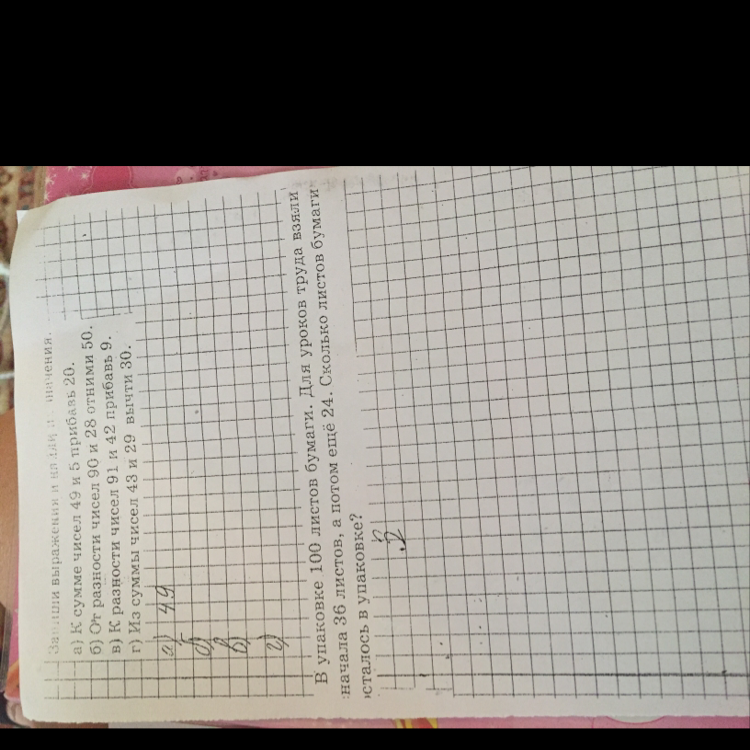 Запиши выражения и найди их значения.
а) К сумме чисел 49 и 5 прибавь 20.
б) От разности чисел 90 и 28 отними 50.
в) К разности чисел 91 и 42 прибавь 9.
г) Из суммы чисел 43 и 29 вычти 30.
а) 49
б)
в)
г)
В упаковке 100 листов бумаги. Для уроков труда взяли
начала 36 листов, а потом ещё 24. Сколько листов бумаги
осталось в упаковке?